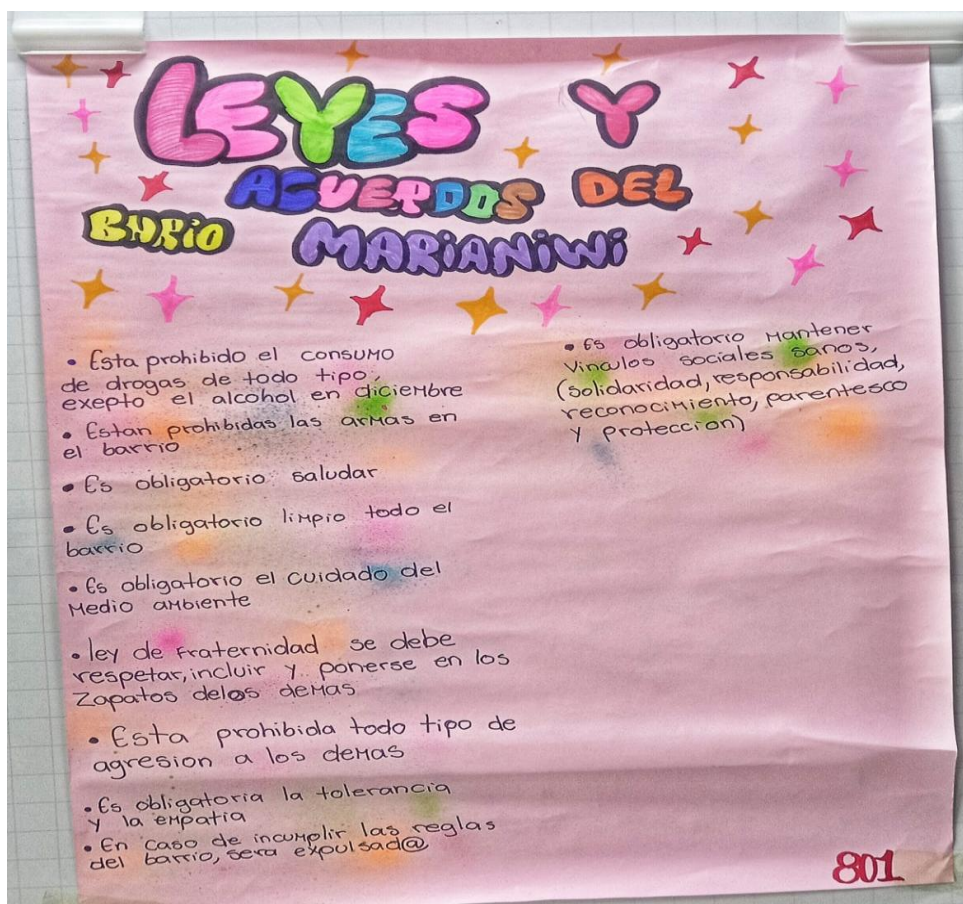 LEYES Y
ACUERDOS DEL
BARRIO MARIANIWI
• Esta prohibido el consumo
de drogas de todo tipo,
exepto el alcohol en diciembre
• Estan prohibidas las armas en
el barrio
• Es obligatorio saludar
• Es obligatorio limpio todo el
barrio
• Es obligatorio el cuidado del
Medio ambiente
• ley de fraternidad se debe
respetar, incluir y ponerse en los
Zapatos delos demas
• Esta prohibida todo tipo de
agresion a los demas
• Es obligatoria la tolerancia
y la empatia
• En caso de incumplir las reglas
del barrio, sera expulsad@
• Es obligatorio Mantener
Vinculos sociales sanos,
(solidaridad, responsabilidad,
reconocimiento, parentesco
y proteccion)
801